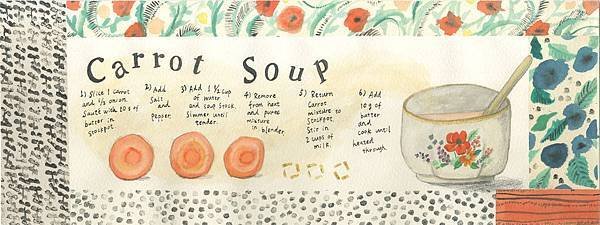 Carrot Soup
1) Slice 1 carrot
and 1/2 onion.
Sauté with 20 g of
butter in
stockpot.
2) Add
Salt
and
Pepper.
3) Add 1 1/2 cup
of water
and soup stock.
Simmer until
tender.
4) Remove
from heat
and pureé
mixture
in blender.
5) Return
Carrot
mixture to
Stockpot.
Stir in
2 cups of
milk.
6) Add
10 g of
butter
and
cook until
heated
through.